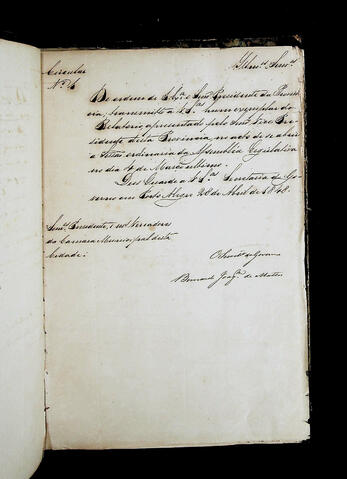 Circular
Nº 6
Illmos. Senrs.
De ordem de S. Exª. o Snr. Presidente da Provin
cia, transmitto a V. Sas. hum exemplar do
Relatorio apresentado pelo Snr. Vice Pre-
sidente desta Provincia no acto de se abrir
a Sessão ordinaria da Assembléa Legislativa
no dia 4 de Março ultimo.
Deos Guarde a V. Sas. Secretaria do Go-
verno em Porto Alegre 28 de Abril de 1848.
Snrs. Presidente, e mais Vereadores
da Camara Municipal desta
Cidade.
O Secretº. do Governo
Bernardo Joaqm. de Mattos